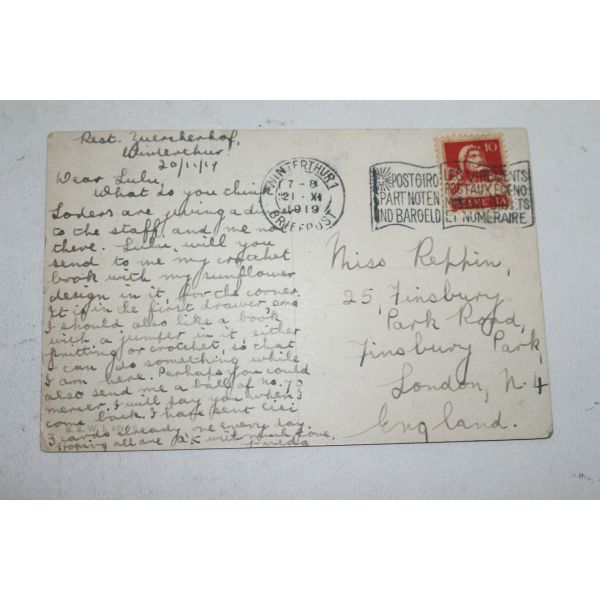 Rest. Zuercherhof,
Winterthur.
20/11/19
Dear Lulu,
What do you think
Loders are giving a d
to the staff and me not
there. Lulu, will you
send to me my crotchet
book with my sunflower
design in it, for the corner.
It is in the first drawer, and
I should also like a book
with a jumper in it either
knitting or crotchet, so that
I can do something while
I am here. Perhaps you could
also send me a ball of No. 70
mercer. I will pay you when I
come back. I have sent Cici
3 cards already one every day.
Hoping all are O'K with much love,
WINTERTHUR 1
7-8
21. XI
1919
BRIEFPOST
POSTGIRO
PART NOTEN
ND BARGELD
LES VIREMENTS
POSTAUX ECONO
ET NUMÉRAIRE
10
Miss Reppin,
25, Finsbury
Park Road,
Finsbury Park,
London, N. 4
England.